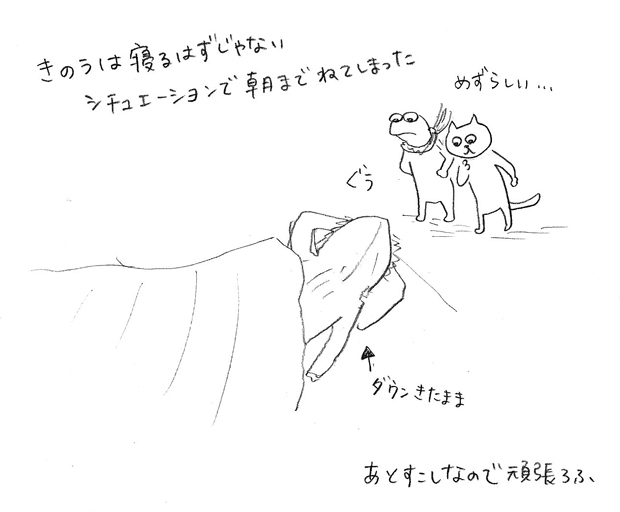 きのうは寝るはずじゃない
シチュエーションで朝までねてしまった
めずらしい…
ぐぅ
ダウンきたまま
あとすこしなので頑張ろふ、